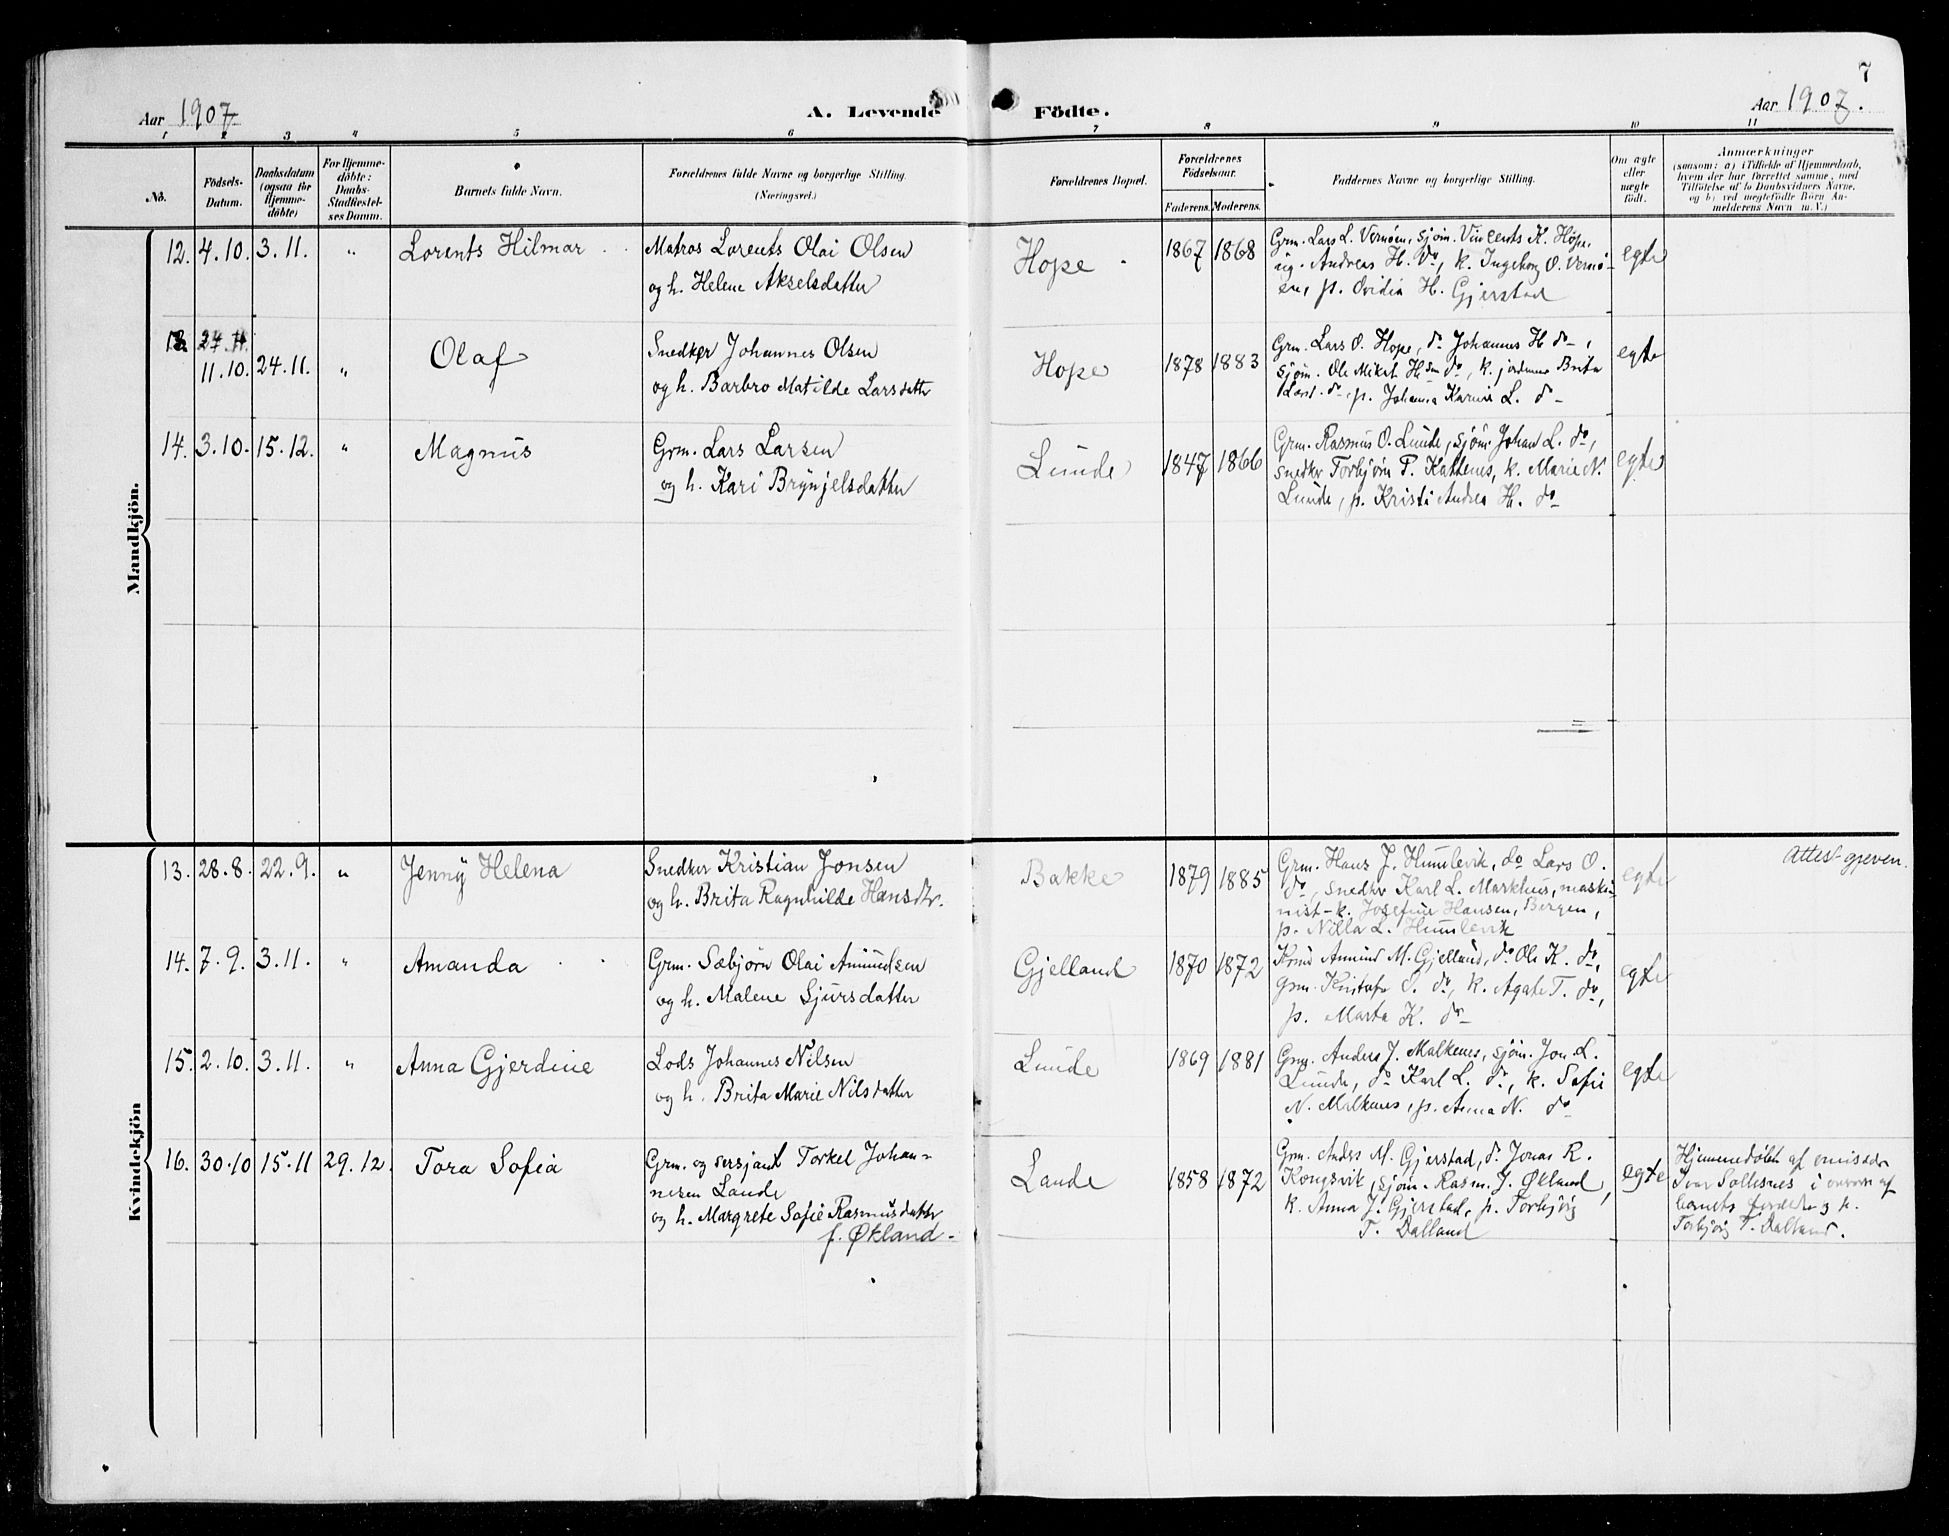 7
Aar 1907
A. Levende
Födte.
Aar 1907.
1 2 3 4 5 6 7 8 9 10 11
No.
Födsels-
Datum.
Daabsdatum
(ogsaa for
Hjemme-
döbte)
For Hjemme-
döbte:
Daabs-
Stadfæstel-
ses Datum.
Barnets fulde Navn.
Forældrenes fulde Navne og borgerlige Stilling.
(Næringsvei.)
Forældrenes Bopæl.
Forældrenes
Födselsaar.
Faderens. Moderens.
Faddernes Navne og borgerlige Stilling.
Om ægte
eller
uægte
födt.
Anmærkninger
(saasom: a) i Tilfælde af Hjemmedaab,
hvem der har forrettet samme, med
Tilföielse af to Daabsvidners Navne.
og b) ved uægtefödte Börn An-
melderens Navn m. V.)
Mandkjön.
12. 4.10. 3.11. " Lorents Hilmar
Matros Lorents Olai Olsen
og h. Helene Akselsdatter
Hope
1867 1868
Grm. Lars L. Vernöen, sjøm. Vincents K. Höpe,
ug. Andreas H. do, k. Ingeborg O. Vernö-
en, p. Ovidia H. Gjerstad
egte
13.
11.10. 24.11. " Olaf
Snedker Johannes Olsen
og h. Barbro Matilde Larsdatter
Hope
1878 1883
Grm. Lars O. Hope, do Johannes H do,
sjøm. Ole Mikal H. do, k. jordemor Brita
do, p. Johanna Karine L. do
egte
14. 3.10. 15.12. " Magnus
Grm. Lars Larsen
og h. Kari Brynjelsdatter
Lunde
1847 1866
Grm. Rasmus O. Lunde, sjøm. Johan L. do,
snedker Torbjörn P. Kattenes, k. Marie N.
Lunde, p. Kristi Andrea H. do
egte
Kvindekjön
13. 28.8. 22.9. " Jenny Helena
Snedker Kristian Jonsen
og h. Brita Ragnhilde Hansdtr.
Bakke
1879 1885
Grm. Hans J. Humlevik, do Lars O.
do, snedker Karl L. Markhus, maski-
nist-k. Josefine Hansen, Bergen,
p. Nilla L. Humlevik
egte
Attest given.
14. 7.9. 3.11. " Amanda
Grm. Sæbjörn Olai Amundsen
og h. Malene Sjursdatter
Gjelland
1870 1872
Amund M. Gjelland, do Ole K. do,
Grm. Kristofer S. do, k. Agate T. do,
p. Marta K. do
egte
15. 2.10. 3.11. " Anna Gjerdine
Lods Johannes Nilsen
og h. Brita Marie Nilsdatter
Lunde
1869 1881
Grm. Anders J. Malkenes, sjøm. Jon L.
Lunde, do Karl L. do, k. Sofie
N. Malkenes, p. Anna N. do
egte
16. 30.10 15.11 29.12. Tora Sofia
Grm. og sersjant Torkel Johan-
nesen Lande
og h. Margrete Sofie Rasmusdatter
f. Økland.
Lande
1858 1872
Grm. Anders M. Gjerstad, do Jonas R.
Kongsvik, sjøm. Rasm. J. Økland,
k. Anna J. Gjerstad, p. Torbjörg
T. Dalland
egte
Hjemmedøbt af emissær
Ivar Soltesnes i nærvær af
barnets forældre og p.
Torbjörg T. Dalland.